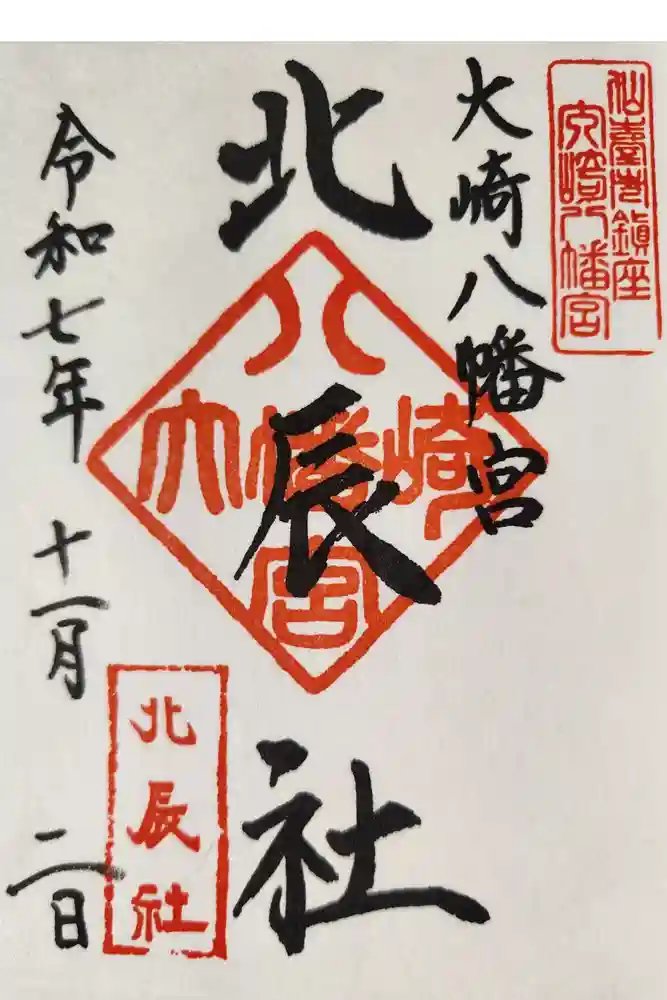 仙臺市鎮座
大崎八幡宮
大崎八幡宮
北辰社
八
大幡崎
宮
北辰社
令和七年 十一月 二日